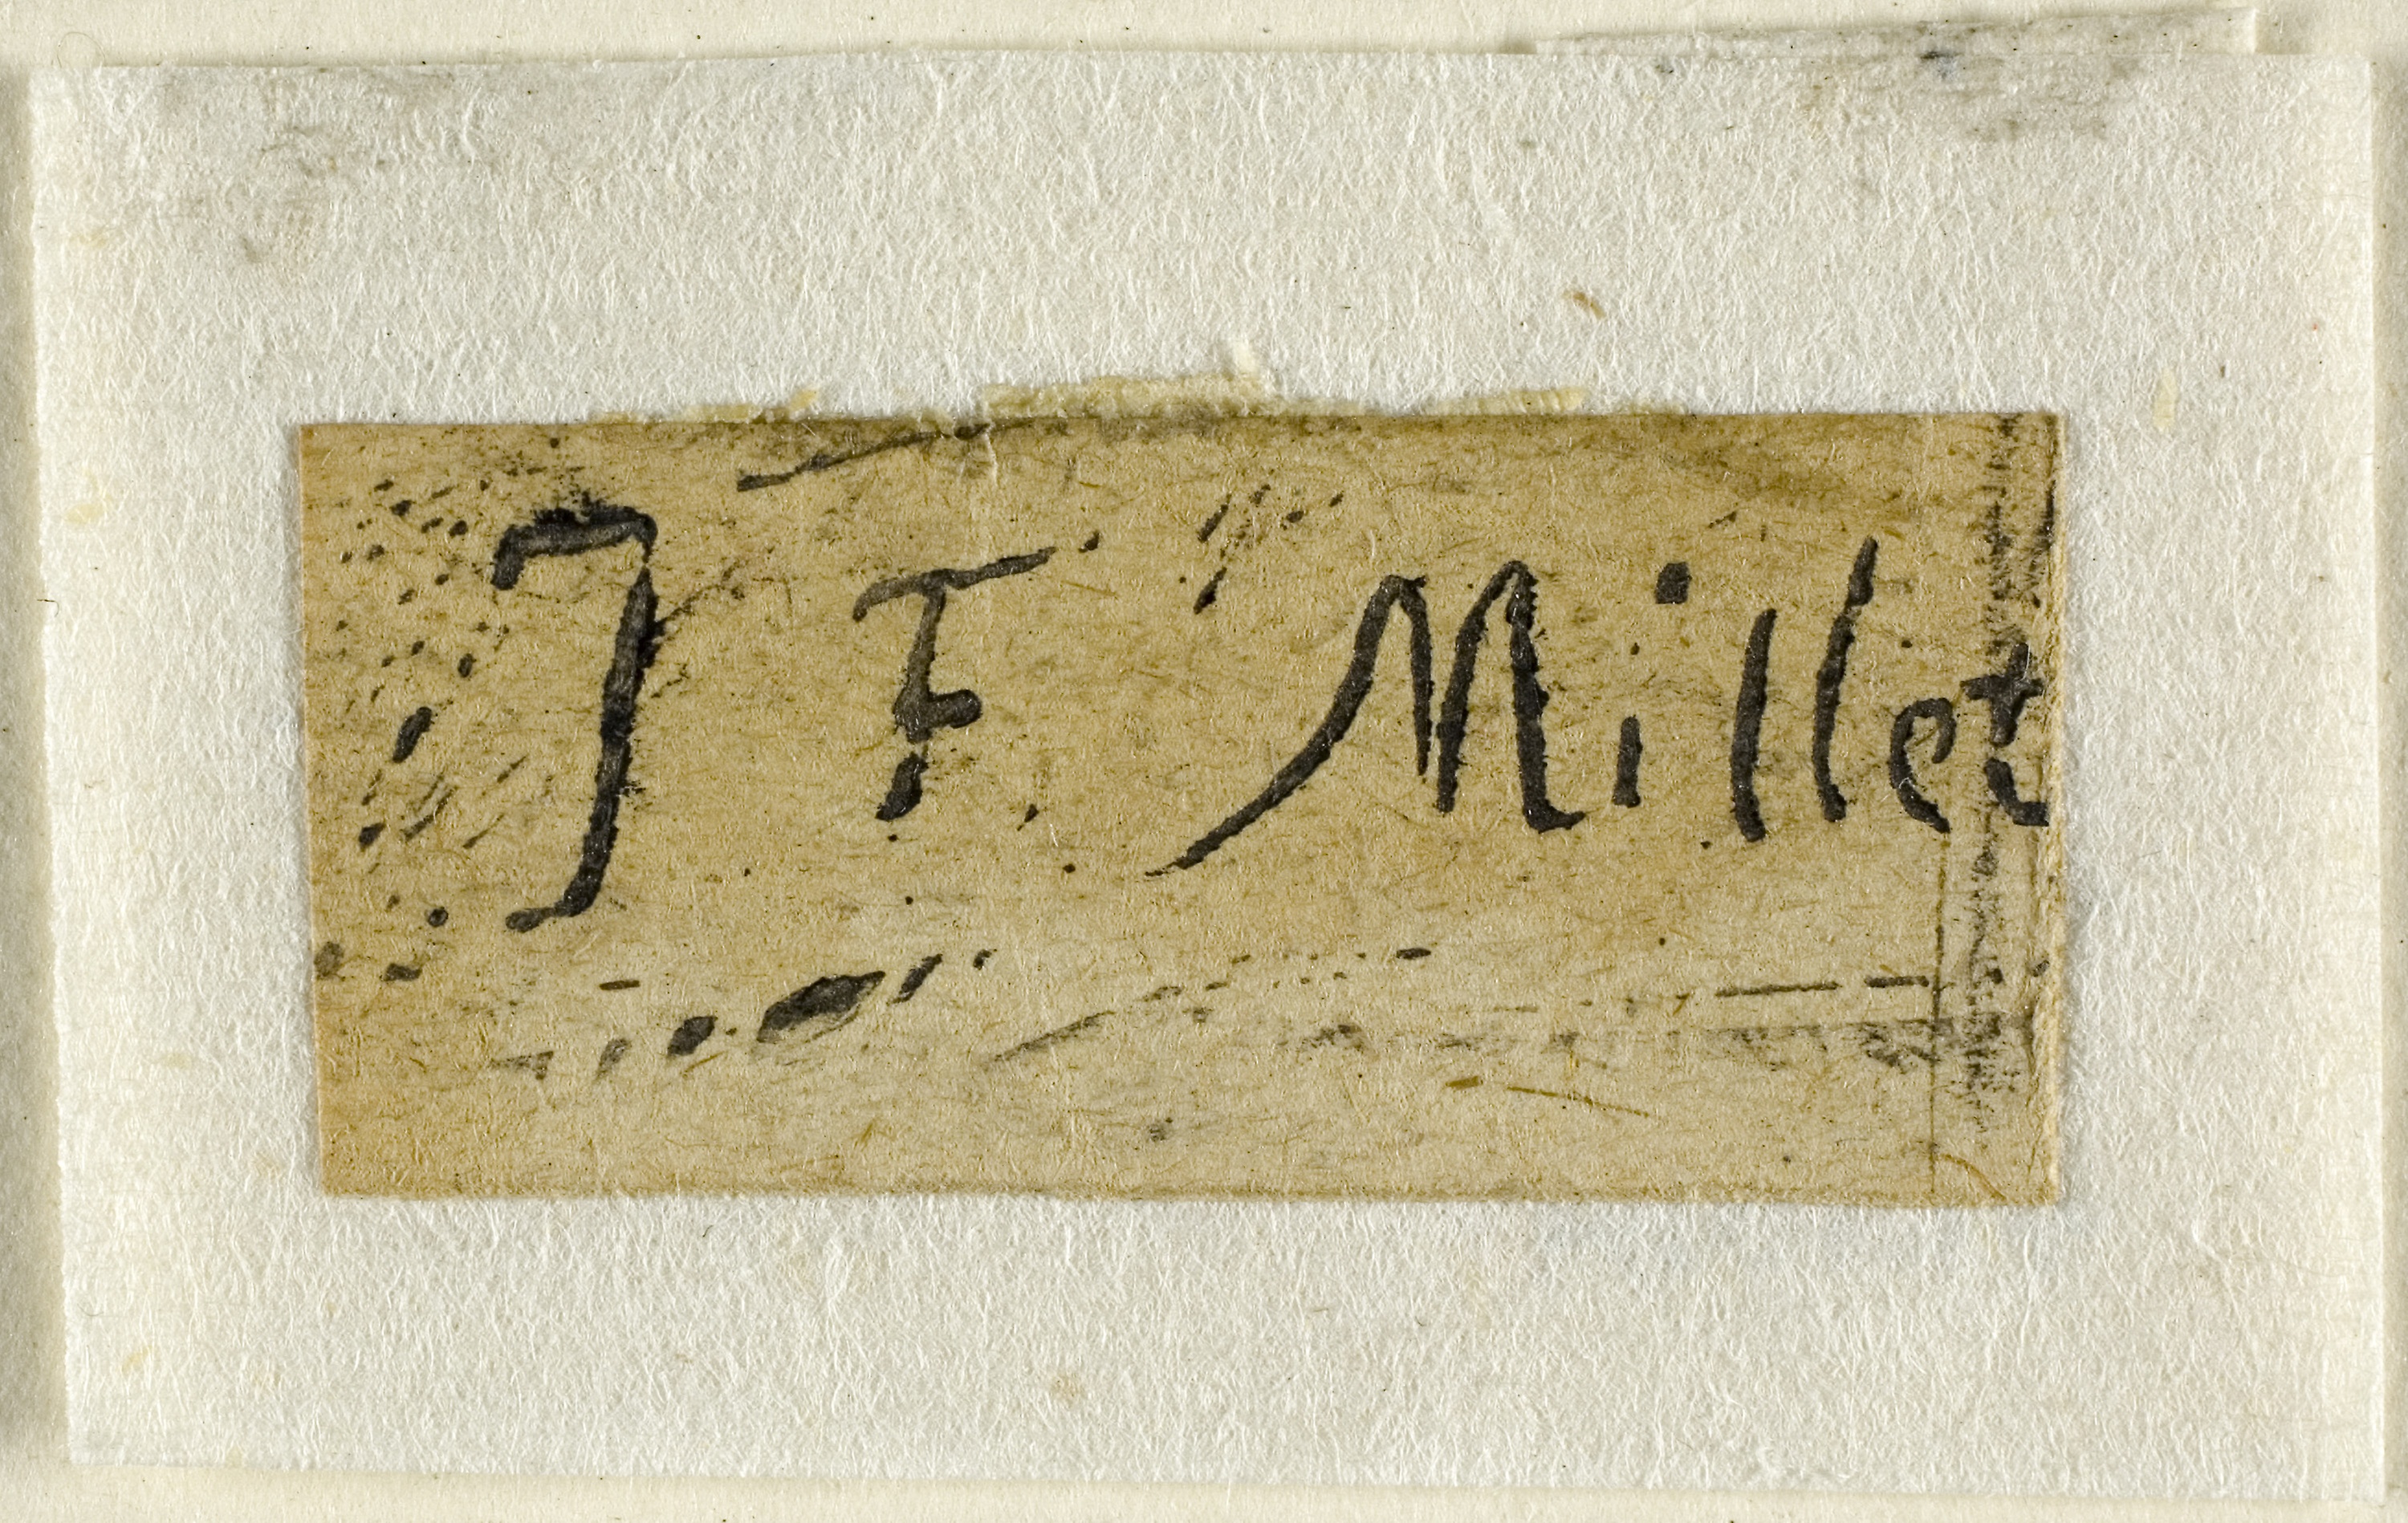 J F. Millet